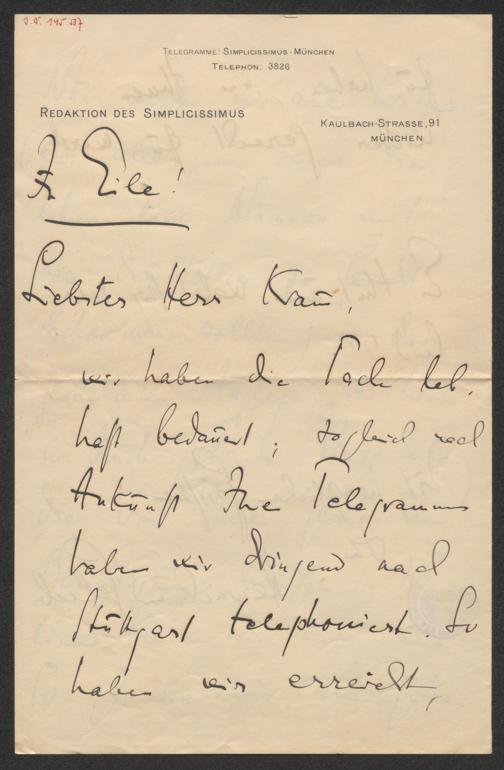 I.N. 145.537
TELEGRAMME: SIMPLICISSIMUS - MÜNCHEN
TELEPHON: 3826
REDAKTION DES SIMPLICISSIMUS
KAULBACH-STRASSE, 91
MÜNCHEN
In Eile!
Liebster Herr Kraus,
wir haben die Sache leb-
haft bedauert; sogleich nach
Ankunft Ihres Telegramms
haben wir dringend nach
Stuttgart telephoniert. So
haben wir erreicht,